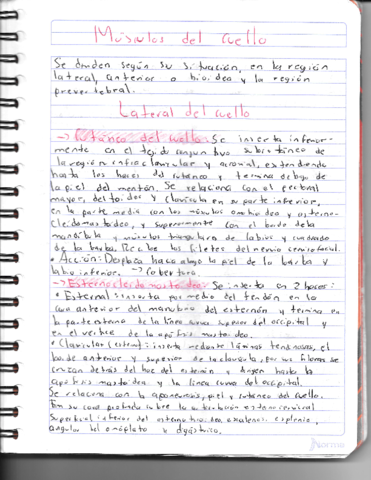 Músculos del cuello
Se dividen según su situación, en la región
lateral, anterior o hioidea y la región
prevertebral.
Lateral del cuello
→ Cutáneo del cuello: Se inserta inferior-
mente en el tejido conjuntivo subcutáneo de
la región infraclavicular y acromial, extendiendo
hasta los haces del cutáneo y termina debajo de
la piel del mentón. Se relaciona con el pectoral
mayor, deltoides y clavícula en su parte inferior,
en la parte media con los músculos omohioideo y esterno-
cleidomastoideo, y superiormente con el borde de la
mandíbula y músculos triangulares de labios y cuadrado
de la barba. Recibe los filetes del nervio cervicofacial.
• Acción: Desplaza hacia abajo la piel de la barba y
labio inferior. → Cobertura.
→ Esternocleidomastoideo: Se inserta en 2 haces:
• Esternal: inserta por medio del tendón en la
cara anterior del manubrio del esternón y termina en
la parte externa de la línea curva superior del occipital y
en el vertice de la apófisis mastoideo.
• Clavicular: inserta mediante láminas tendinosas, el
borde anterior y superior de la clavícula, por sus fibras se
cruzan detrás del haz del esternón y dirigen hasta la
apófisis mastoidea y la línea curva del occipital.
Se relaciona con la aponeurosis, piel y cutáneo del cuello.
su cara profunda cubre la articulación esternoclavicular
superficial inferior del esternohioideo, escalenos, esplenio,
angular del omóplato y digástrico.
Norma